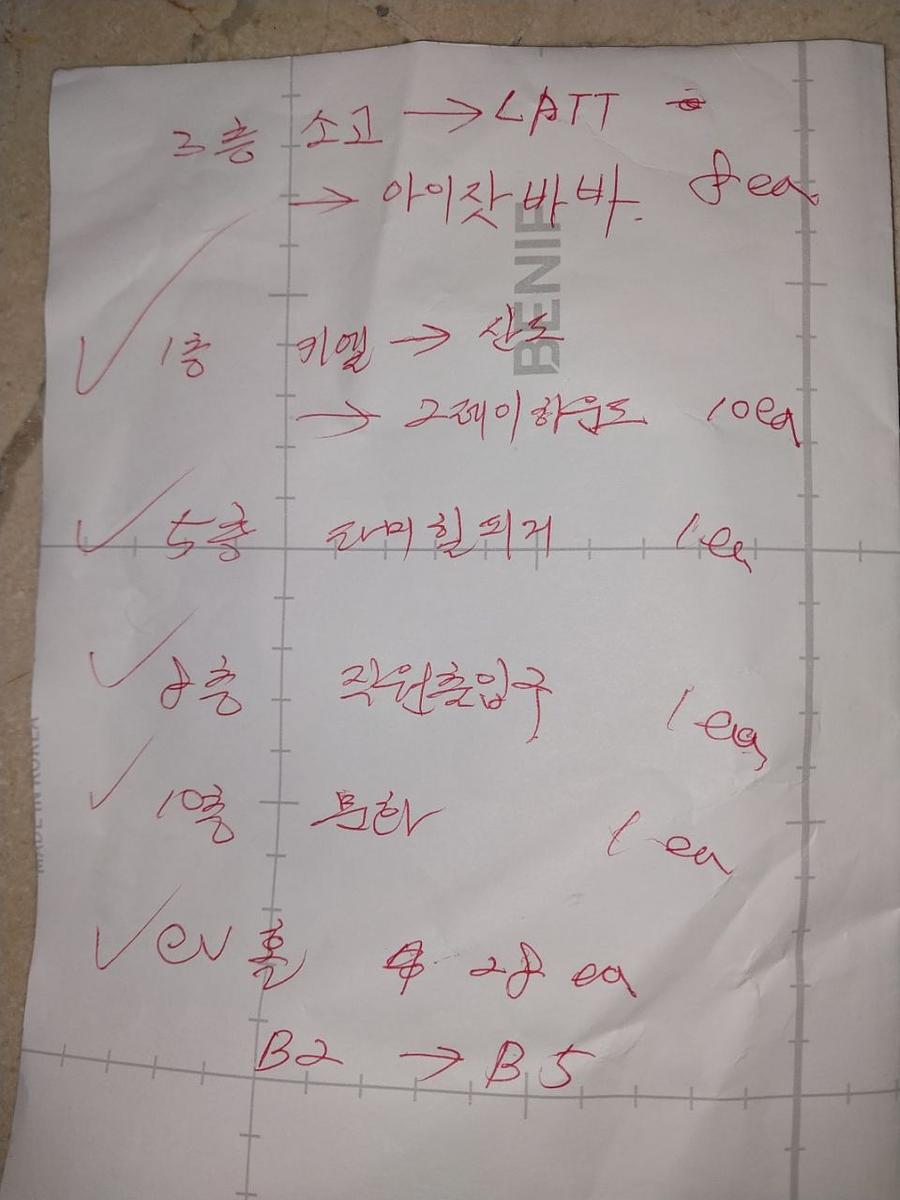 3층 소고 → LATT
→ 아이잣바바. 8ea
BENIE
1층 키엘 → 산도
→ 그레이하운드 10ea
5층 타미힐피거 1ea
8층 직원출입구 1ea
10층 문화 1ea
EV홀 28ea
B2 → B5
MADE IN KOREA